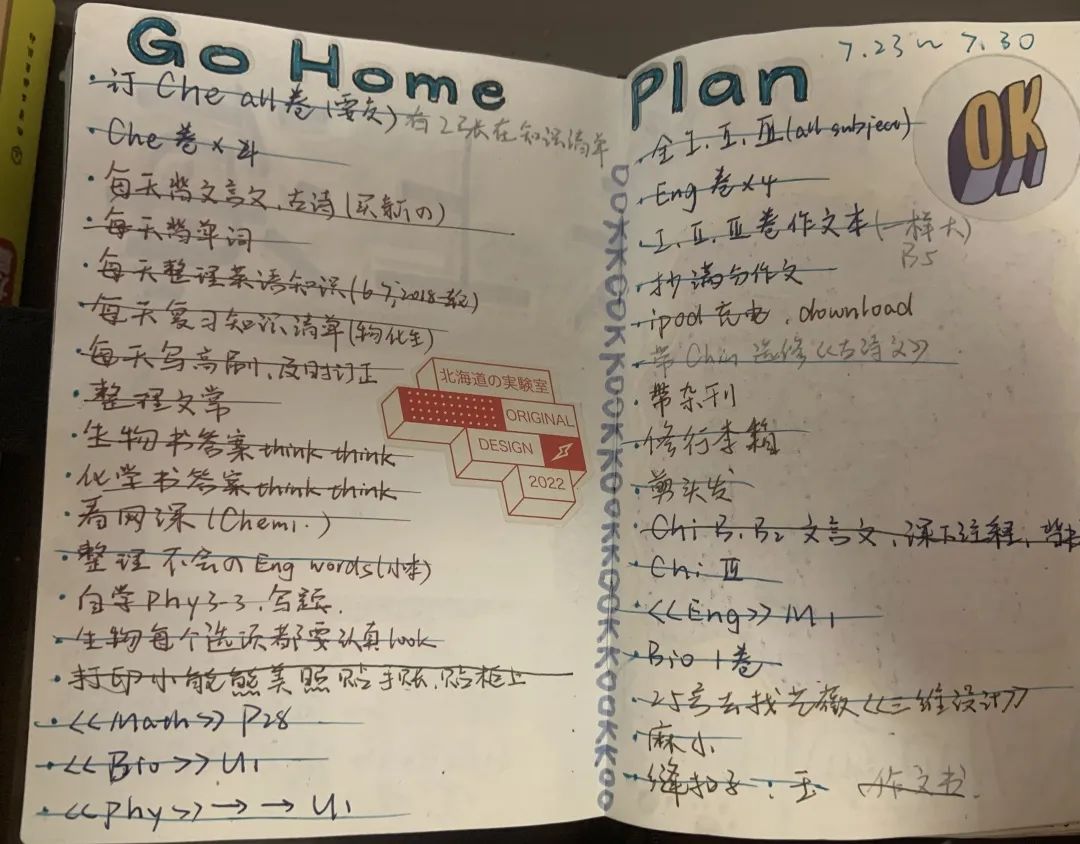 Go Home
·订 Che all 卷 (要交) 有2张在知识清单
·Che 卷 ×4
·每天背文言文、古诗 (买新の)
·每天背单词
·每天整理英语知识 (6-7, 2018
·每天复习知识清单 (物化生)
·每天写高刷、及时订正
·整理文常
·生物书答案 think think
·化学书答案 think think
·看网课 (Chemi.)
·整理不会の Eng words (小本)
·自学 Phy 3-3、写题.
·生物每个选项都要认真 look
·打印小熊美照贴手账、贴柜上
·<<Math>> P28
·<<Bio>> U1
·<<Phy>> → → U1
北海道の実験室
ORIGINAL
DESIGN
2022
OOKKOOKKOOKKOOKKOOKKOOKKOOKKOO
Plan
7.23~7.30
OK
·全 I、II、III (all subject)
·Eng 卷 ×4
·I、II、III 卷作文本 (一样大)
B5
·抄满分作文
·ipod 充电、download
·带 Chin 选修《古诗文》
·带杂刊
·修行李箱
·剪头发
·Chi B1 B2 文言文、课下注释、背
·Chi III
·<<Eng>> M1
·Bio 1卷
·25号去找艺薇《三维设计》
·麻小
·缝扣子、 作文书.